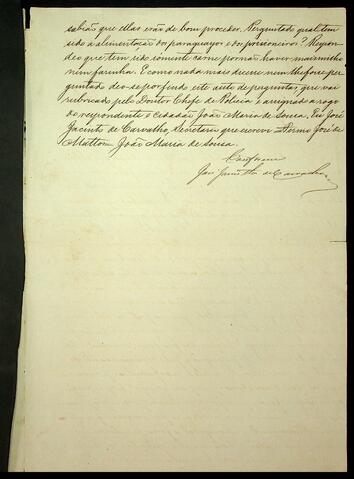 sabião que ellas erão de bom proceder. Perguntado qual tem
sido a alimentação dos paraguayos e dos prisioneiros? Respon-
deo que tem sido somente carne por não haver mais milho
nem farinha. E como nada mais dissera nem lhe fora per-
guntado deo-se por findo este auto de perguntas, que vai
rubricado pelo Doutor Chefe de Policia e assignado a rogo
do respondente o Cidadão João Maria de Sousa. Eu José
Jacintho de Carvalho, Secretario que escrevi. Fermo José de
Mattos. João Maria de Sousa.
Conforme
José Jacintho de Carvalho